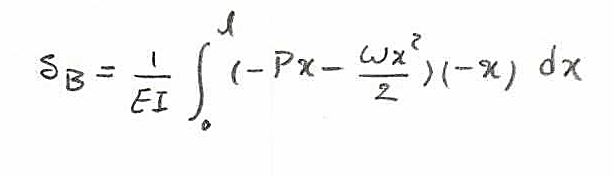 δ_B = \frac{1}{EI} \int_0^l (-Px - \frac{ωx^2}{2})(-x) dx